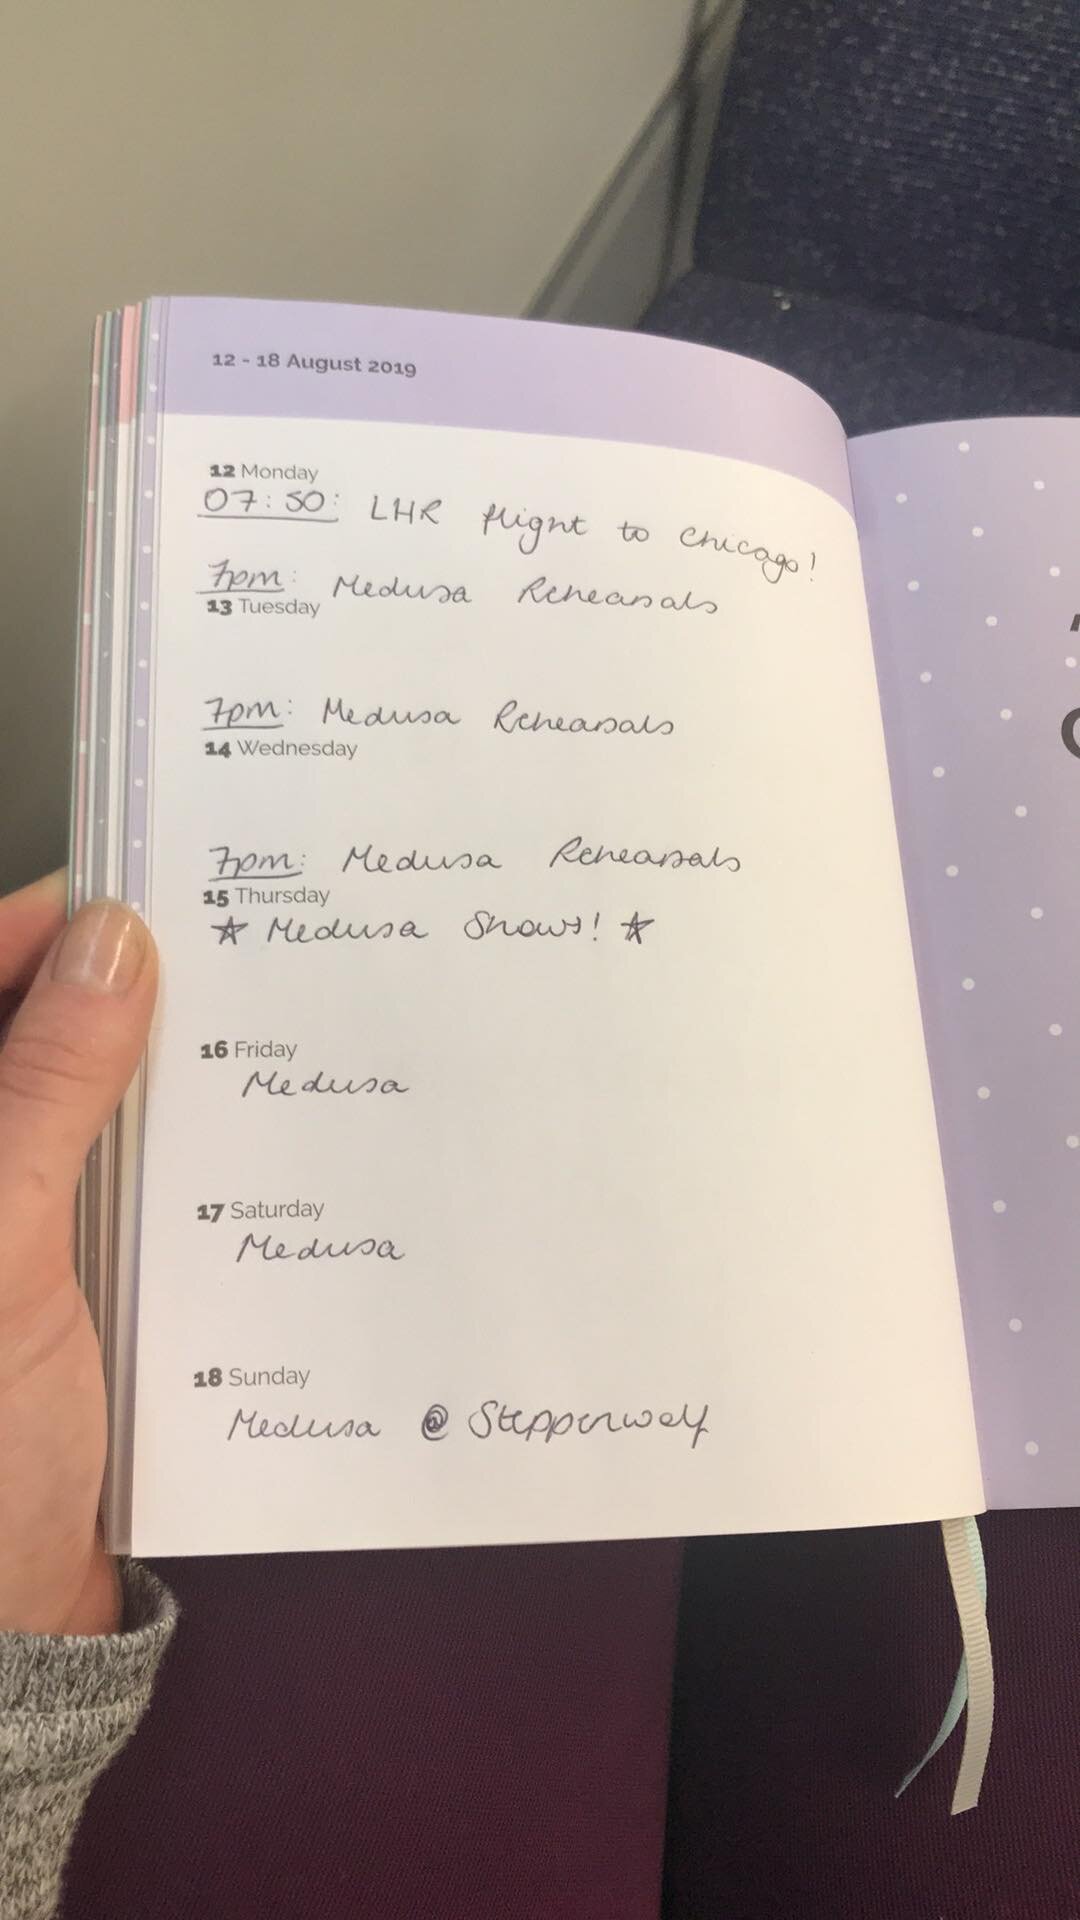 12 - 18 August 2019
12 Monday
07:50: LHR flight to Chicago!
7pm: Medusa Rehearsals
13 Tuesday
7pm: Medusa Rehearsals
14 Wednesday
7pm: Medusa Rehearsals
15 Thursday
☆ Medusa Shows! ☆
16 Friday
Medusa
17 Saturday
Medusa
18 Sunday
Medusa @ Stepperwolf